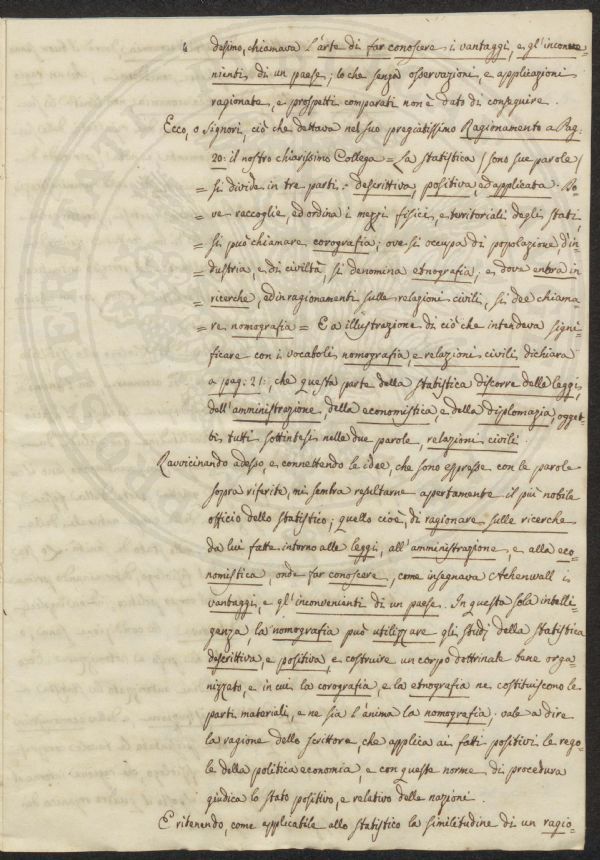 desimo, chiamava l'arte di far conoscere i vantaggi, e gl'inconve=
nienti di un paese; lo che senza osservazioni, e applicazioni
ragionate, e prospetti comparati non è dato di conseguire.
Ecco, o Signori, ciò che dettava nel suo pregiatissimo Ragionamento a Pag:
20: il nostro chiarissimo Collega = La statistica (sono sue parole)
= si divide in tre parti: descrittiva, positiva, ed applicata. Do=
= ve raccoglie, ed ordina i mezzi fisici, e territoriali degli stati,
= si può chiamare corografia; ove si occupa di popolazione, d'in=
= dustria, e di civiltà, si denomina etnografia, e dove entra in
= ricerche, ed in ragionamenti sulle relazioni civili, si dee chiama=
= re nomografia = E a illustrazione di ciò che intendeva signi=
ficare con i vocaboli nomografia, e relazioni civili, dichiara
a pag: 21:, che questa parte della statistica discorre delle leggi,
dell'amministrazione, della economistica, e della diplomazia, ogget=
ti tutti sottintesi nelle due parole, relazioni civili.
Ravvicinando adesso, e connettendo le idee, che sono espresse con le parole
sopra riferite, mi sembra resultarne apertamente il più nobile
officio dello statistico; quello cioè, di ragionare sulle ricerche
da lui fatte intorno alle leggi, all'amministrazione, e alla eco=
nomistica, onde far conoscere, come insegnava Achenwall i
vantaggi, e gl'inconvenienti di un paese. In questa sola intelli=
genza, la nomografia può utilizzare gli studj della statistica
descrittiva, e positiva, e costruire un corpo dottrinale bene orga=
nizzato, e in cui la corografia, e la etnografia ne costituiscono le
parti materiali, e ne sia l'anima la nomografia. vale a dire
la ragione dello scrittore, che applica ai fatti positivi le rego=
le della politica economia, e con queste norme di procedura
giudica lo stato positivo, e relativo delle nazioni.
E ritenendo, come applicabile allo statistico la similitudine di un ragio=